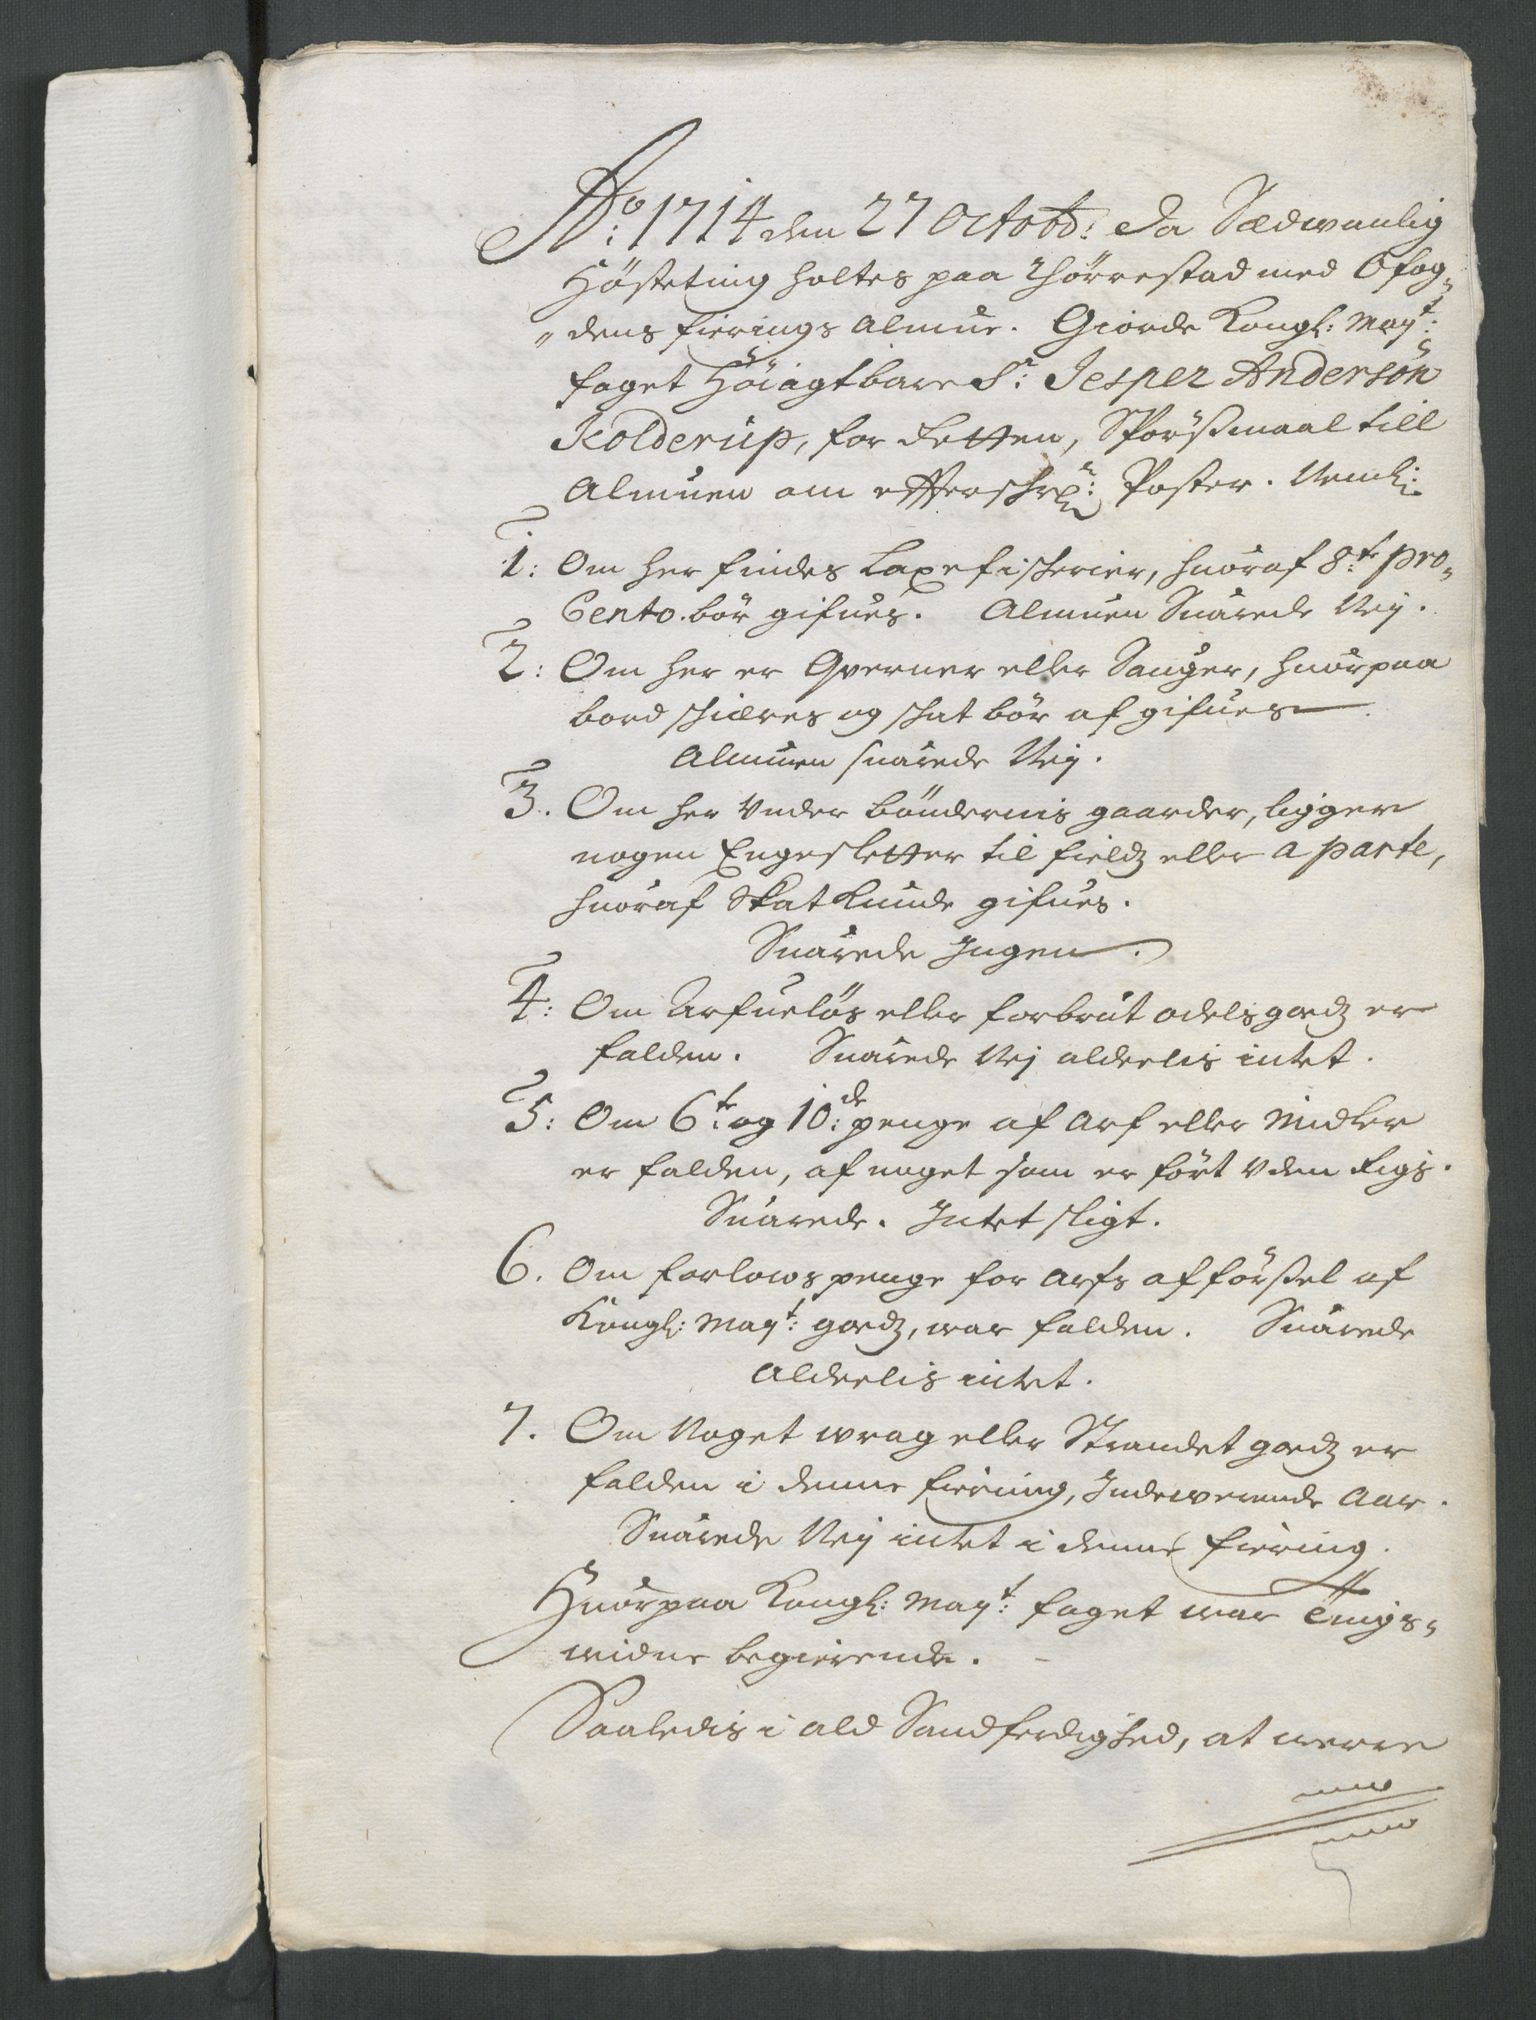 Ao: 1714 den 27 Octobr: da Sædwanlig
Høsteting holtes paa Thörrestad med Ofog„
„dens fierings Almue. Giorde Kongl: Mayt:
foget Höiagtbare Sr: Jesper Andersön
Kolderup, for Retten, Spörßmaal till
Almuen om effterschrne: Poster. Neml:
1: Om her findes Laxefischerier, huoraf 8te pro„
Cento. bör gifues. Almuen Suarede Nei.
2: Om her er Qverner eller Sauger, huorpaa
bord schiæres og schat bör af gifues
Almuen suarede Nei.
3. Om her Under Böndernis gaarder, ligger
nogen Engesletter til fieldz eller a parte,
huoraf Skat kunde gifues.
Suarede Ingen.
4: Om Arfuelös eller forbrut odelsgodz er
falden. Suarede Nei alderlis intet.
5: Om 6te og 10de: penge af Arf eller Midler
er falden, af noget som er fört Uden Rigs.
Suarede. Intet sligt.
6. Om forlows penge for Arfs afförßel af
Kongl: Mayt: godz, war falden. Suarede
Alderlis intet.
7. Om Noget wrag eller Strandet godz er
falden i denne fiering, Indewerende Aar.
Suarede Nei intet i denne fiering.
Huorpaa Kongl: Mayt: foget war Tings„
widne begierende.
Saaledis i ald Sandferdighed, at werre